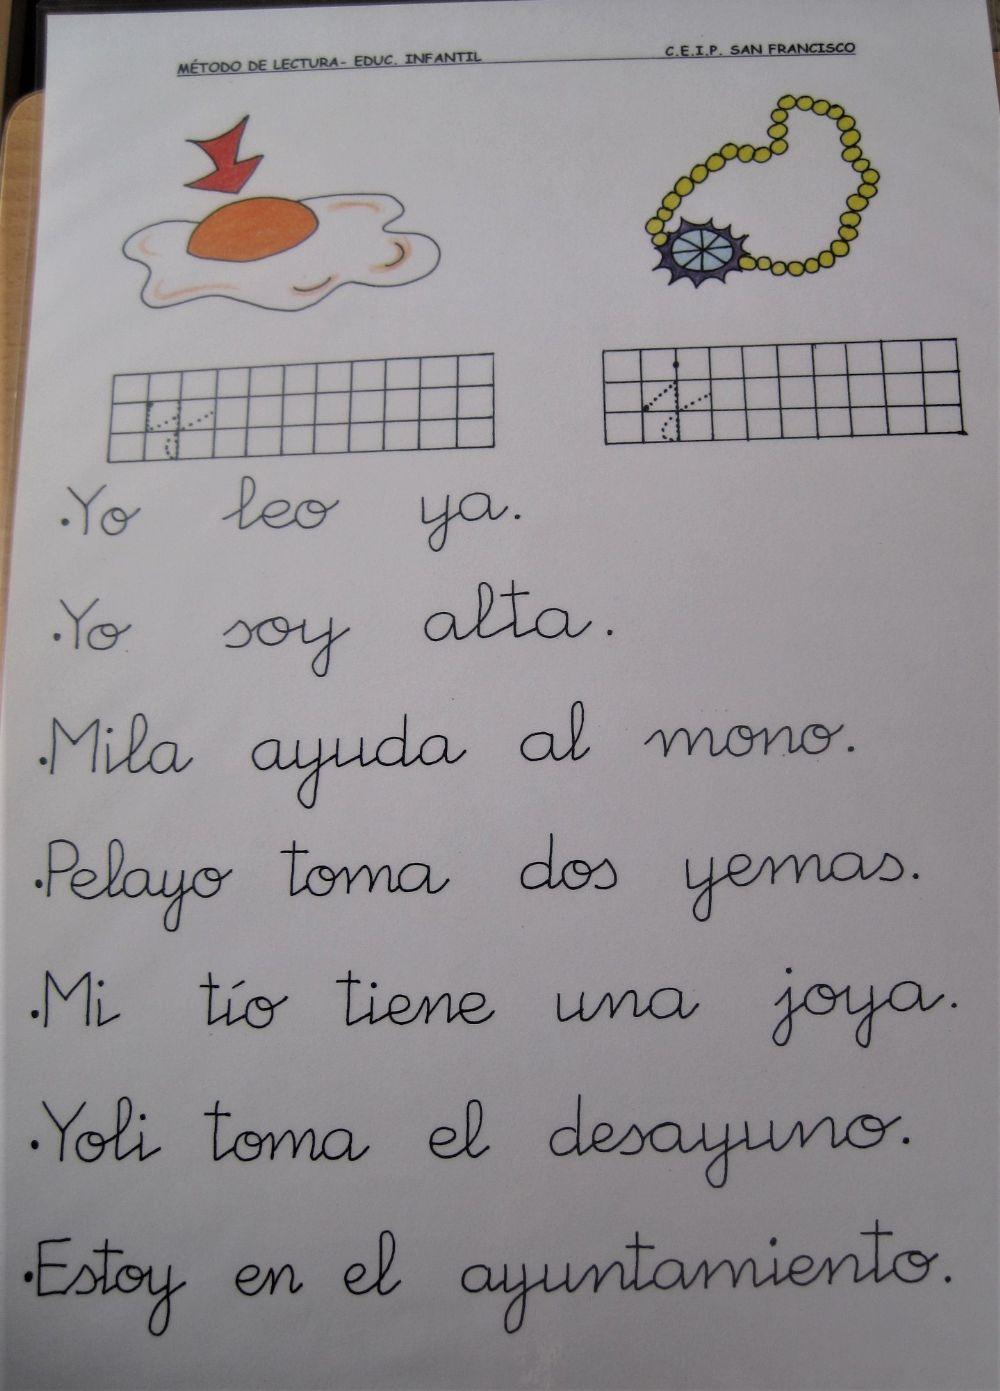 MÉTODO DE LECTURA- EDUC. INFANTIL C.E.I.P. SAN FRANCISCO
y j
•Yo leo ya.
•Yo soy alta.
•Mila ayuda al mono.
•Pelayo toma dos yemas.
•Mi tío tiene una joya.
•Yoli toma el desayuno.
•Estoy en el ayuntamiento.